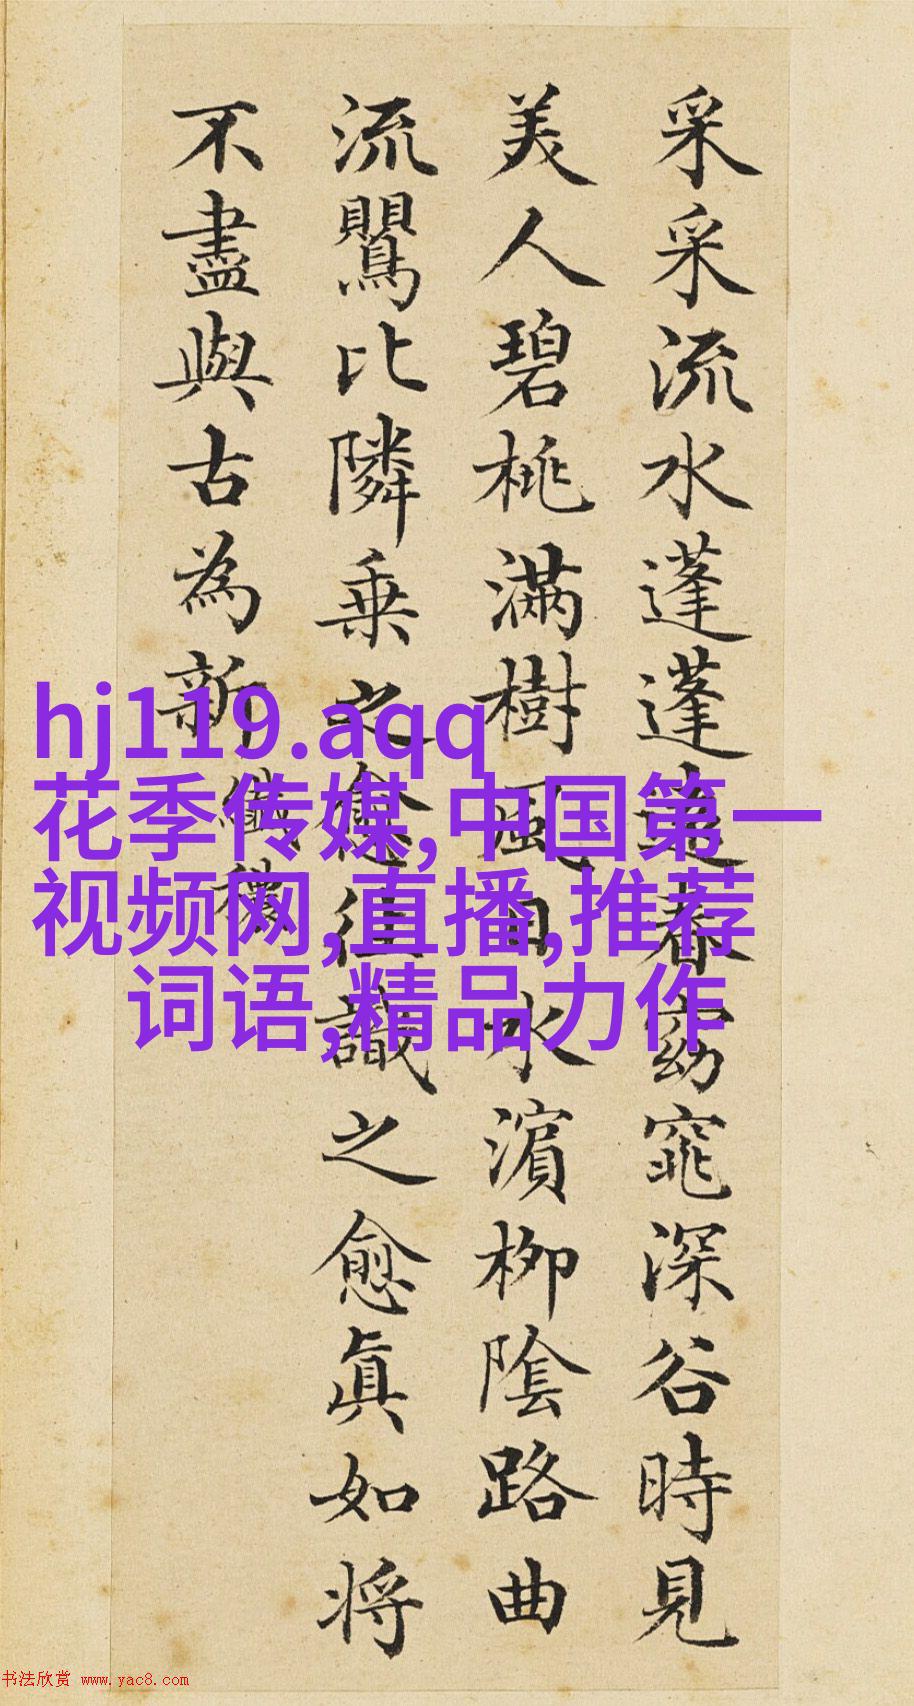 采采流水蓬蓬遠春窈窕深谷時見
美人碧桃滿樹風日水濱柳隂路曲
流鸎比隣乗之愈往識之愈眞如将
不盡與古為新
纖穠
hj119.aqq
花季传媒,中国第一
视频网,直播,推荐
词语,精品力作
书法欣赏 www.yac8.com